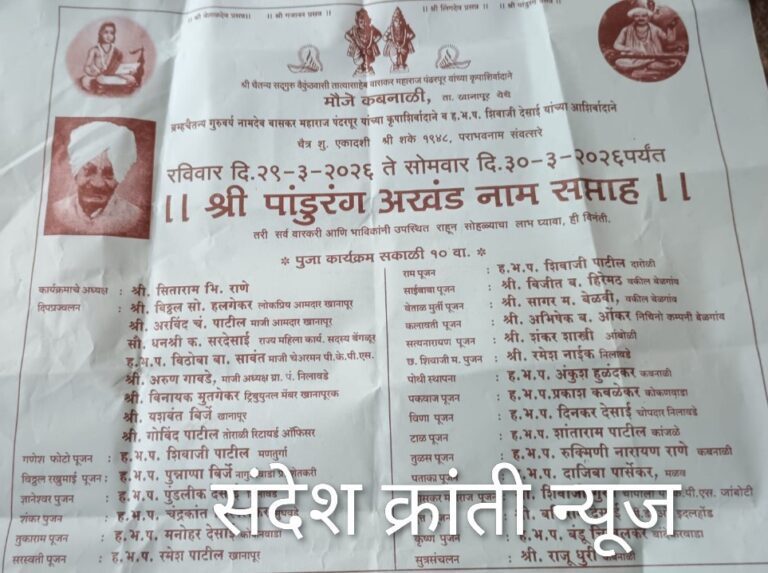 || श्री गजानन प्रसन्न ||
|| श्री लिंगदेव प्रसन्न ||
श्री चैतन्य सद्गुरु वैकुंठवासी तात्यासाहेब वासकर महाराज पंढरपूर यांच्या कृपाशिर्वादाने
मौजे कबनाळी, ता. खानापूर येथे
ब्रम्हचैतन्य गुरुवर्य नामदेव वासकर महाराज पंढरपूर यांच्या कृपाशिर्वादाने व ह.भ.प. शिवाजी देसाई यांच्या आशिर्वादाने
चैत्र शु. एकादशी श्री शके १९४८, पराभवनाम संवत्सरे
रविवार दि.२९-३-२०२६ ते सोमवार दि.३०-३-२०२६पर्यंत
|| श्री पांडुरंग अखंड नाम सप्ताह ||
तरी सर्व वारकरी आणि भाविकांनी उपस्थित राहून सोहळ्याचा लाभ घ्यावा, ही विनंती.
* पुजा कार्यक्रम सकाळी १० वा. *
कार्यक्रमाचे अध्यक्ष : श्री. सिताराम भि. राणे
दिपप्रज्वलन : श्री. विठ्ठल सो. हलगेकर लोकप्रिय आमदार खानापूर
श्री. अरविंद चं. पाटील माजी आमदार खानापूर
सौ धनश्री क. सरदेसाई राज्य महिला कार्य. सदस्य बेंगळूर
ह.भ.प. विठोबा बा. सावंत माजी चेअरमन पी.के.पी.एस.
श्री. अरुण गावडे, माजी अध्यक्ष ग्रा. पं. निलावडे
श्री. विनायक मुतगेकर ट्रिबुनल मेंबर खानापूरक
श्री. यशवंत बिर्जे खानापूर
श्री. गोविंद पाटील तोराळी रिटायर्ड ऑफिसर
गणेश फोटो पूजन : ह.भ.प. शिवाजी पाटील मणतुर्गा
विठ्ठल रखुमाई पूजन : ह.भ.प. पुन्नाप्पा बिर्जे
ज्ञानेश्वर पुजन : ह.भ.प. पुंडलीक
शंकर पुजन : ह.भ.प. चंद्रकांत
तुकाराम पूजन : ह.भ.प. मनोहर देसाई
सरस्वती पूजन : ह.भ.प. रमेश पाटील खानापूर
राम पूजन : ह.भ.प. शिवाजी पाटील दारोळी
साईबाबा पूजन : श्री. विजीत ब. हिरेमठ वकील बेळगांव
बेताळ मुर्ती पूजन : श्री. सागर म. बेळवी, वकील बेळगांव
कलावती पूजन : श्री. अभिषेक ब. ओंकर निधिनो कम्पनी बेळगांव
सत्यनारायण पूजन : श्री. शंकर शास्त्री आंबोळी
छ. शिवाजी म. पुजन : श्री. रमेश नाईक निलावडे
पोथी स्थापना : ह.भ.प. अंकुश हुळंदकर कबनाळी
पकवाज पूजन : ह.भ.प.प्रकाश कबळेकर कोकणवाडा
विणा पूजन : ह.भ.प. दिनकर देसाई चोपदार निलावडे
टाळ पूजन : ह.भ.प. शांताराम पाटील कांजळे
तुळस पूजन : ह.भ.प. रुक्मिणी नारायण राणे कबनाळी
पताका पूजन : ह.भ.प. दाजिबा पार्सेकर, मळव
महाराज पूजन : शिवाजी
के.पी.एस. जांबोटी
कृष्ण पुजन : ह.भ.प. बडू
सुत्रसंचलन : श्री. राजू धुरी कबनाळी
संदेश क्रांती न्यूज